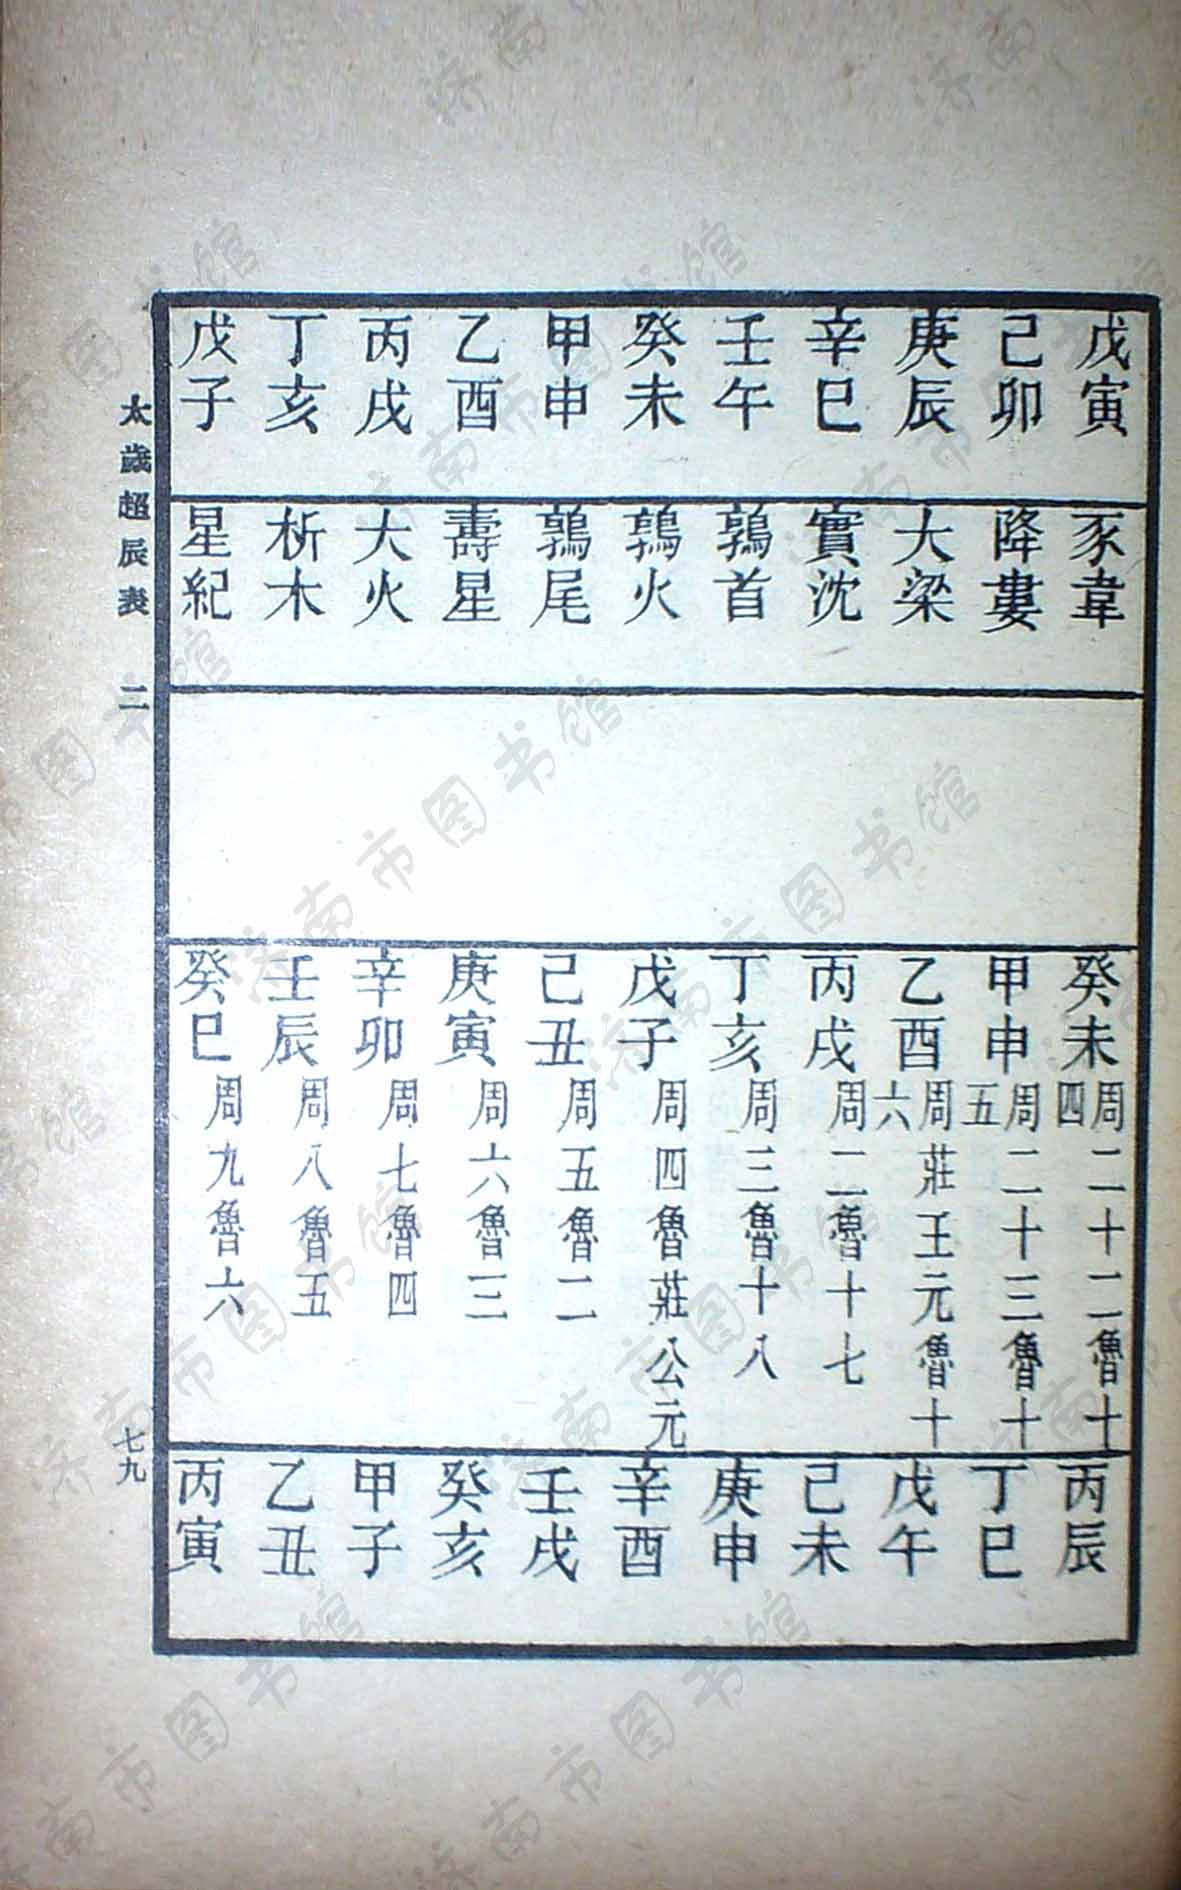 戊寅 豕韋 癸未 周二十二魯十四 丙辰
己卯 降婁 甲申 周二十三魯十五 丁巳
庚辰 大梁 乙酉 周莊王元魯十六 戊午
辛巳 實沈 丙戌 周二魯十七 己未
壬午 鶉首 丁亥 周三魯十八 庚申
癸未 鶉火 戊子 周四魯莊公元 辛酉
甲申 鶉尾 己丑 周五魯二 壬戌
乙酉 壽星 庚寅 周六魯三 癸亥
丙戌 大火 辛卯 周七魯四 甲子
丁亥 析木 壬辰 周八魯五 乙丑
戊子 星紀 癸巳 周九魯六 丙寅
太歲超辰表 二 七九
济南市图书馆